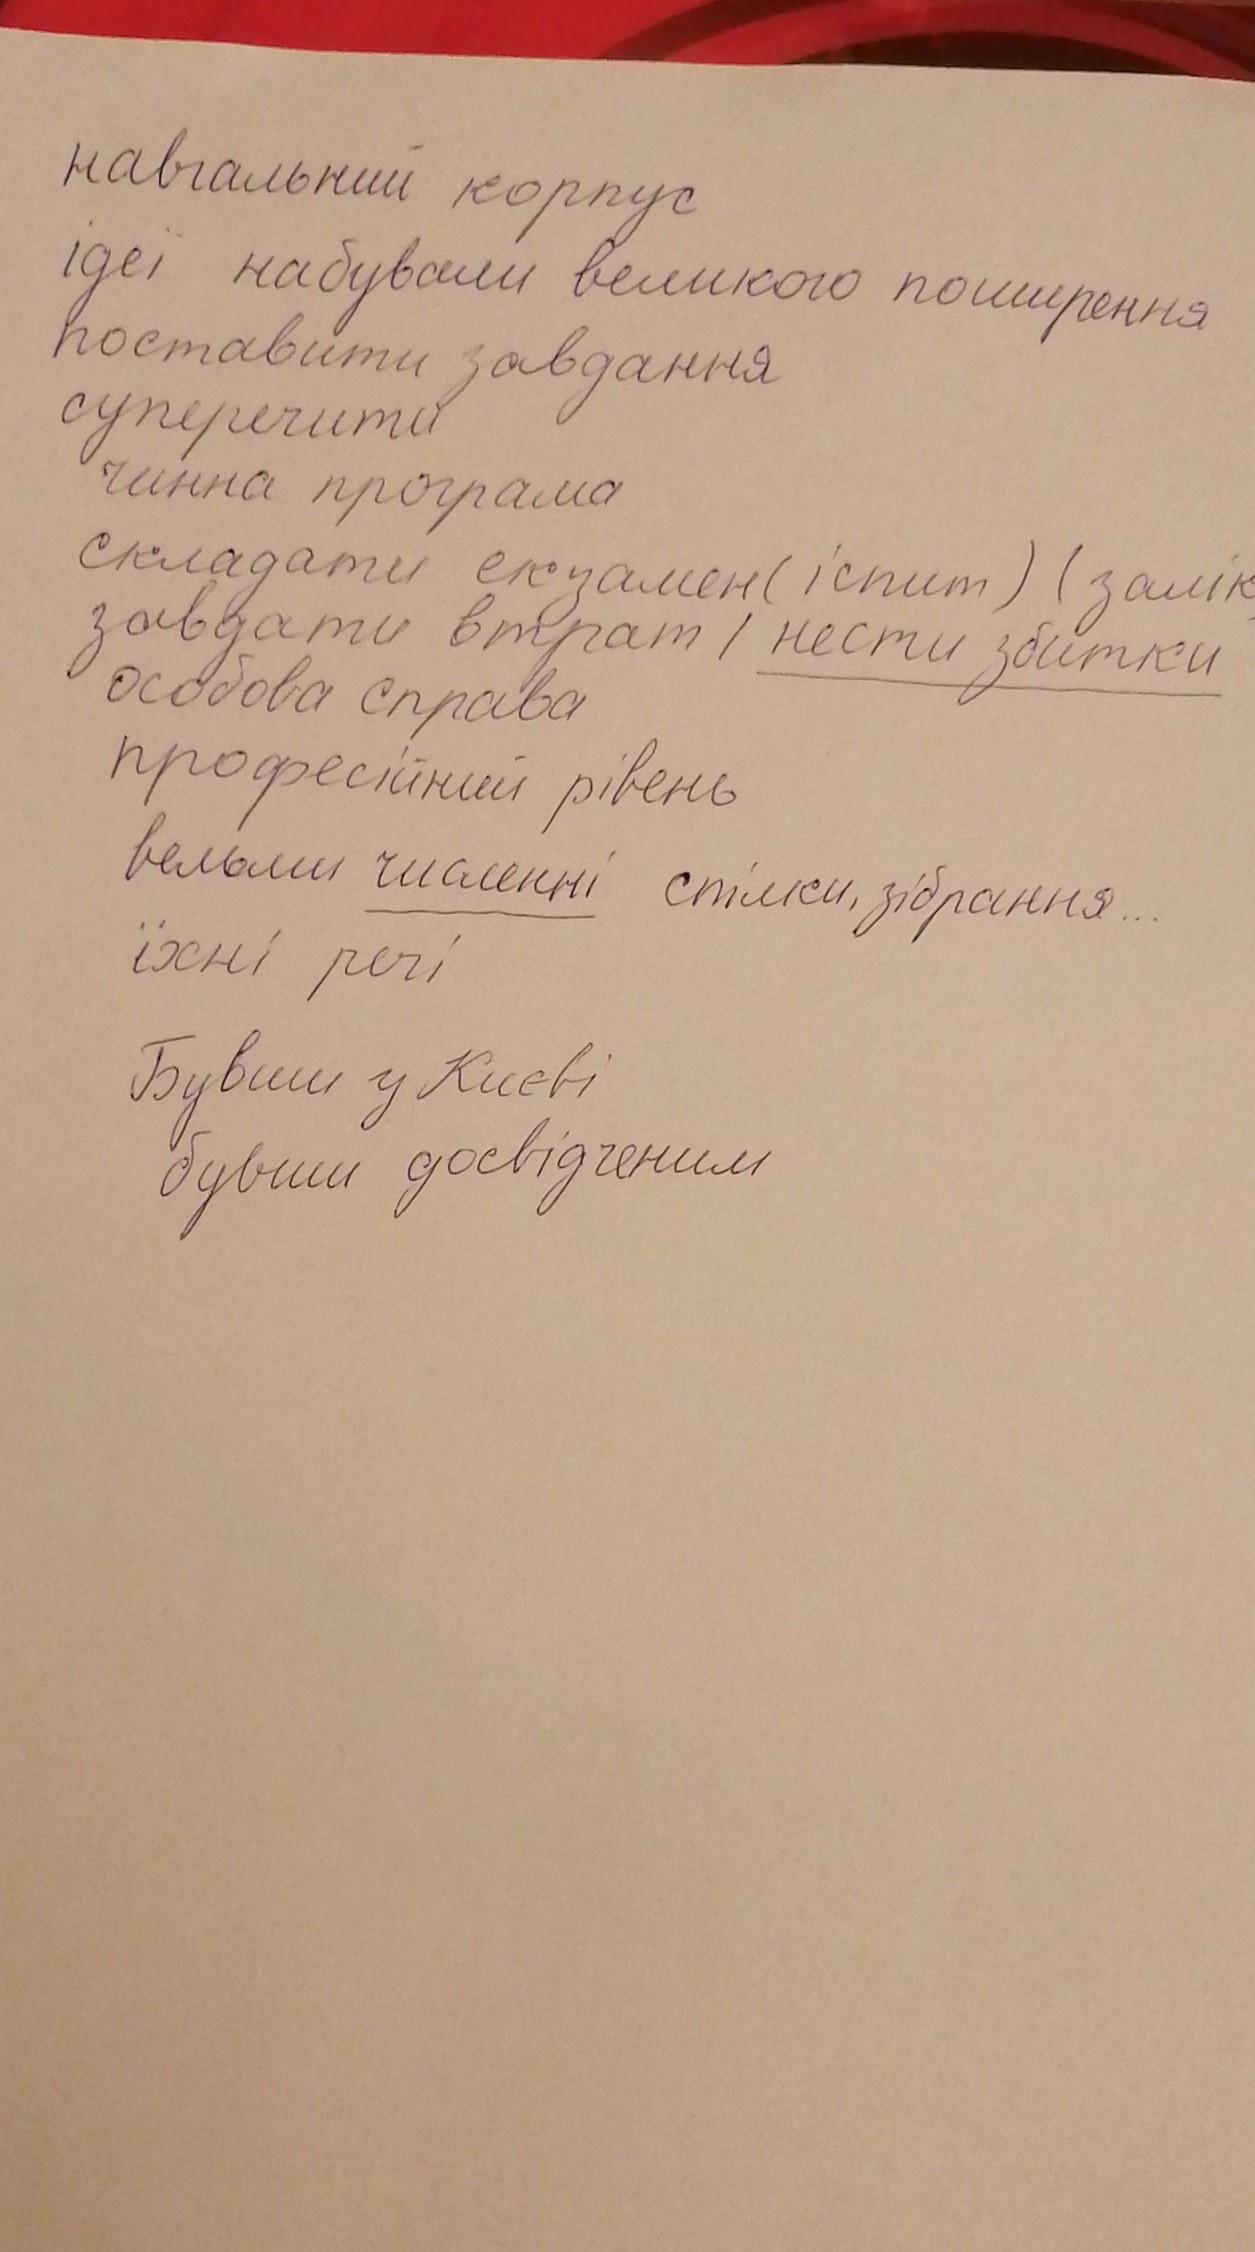 навчальний корпус
ідеї набували великого поширення
поставити завдання
суперечити
чинна програма
складати екзамен (іспит) (залік
завдати втрат / нести збитки
особова справа
професійний рівень
вельми численні спілки, зібрання...
їхні речі
Бувши у Києві
бувши досвідченим